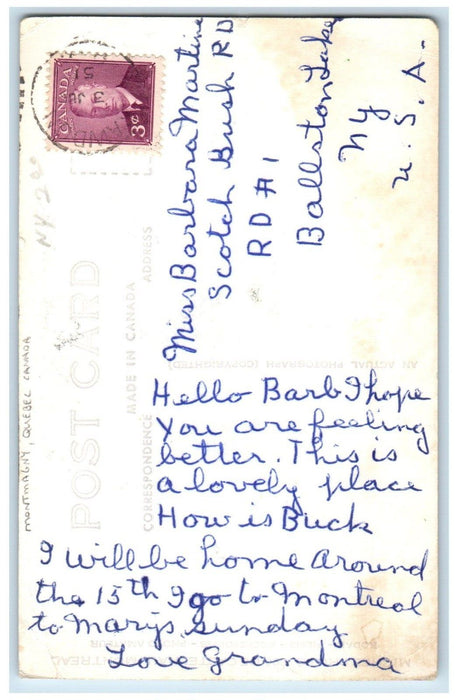 CANADA
3¢
Miss Barbara Martine
Scotch Bush RD
RD #1
Ballston Lake
NY
U. S. A.
NY 200
MONTMAGNY, QUEBEC CANADA
POST CARD
MADE IN CANADA
CORRESPONDENCE
ADDRESS
AN ACTUAL PHOTOGRAPH (COPYRIGHTED)
Hello Barb I hope
you are feeling
better. This is
a lovely place
How is Buck
I will be home around
the 15th I go to Montreal
to Marys sunday
Love Grandma